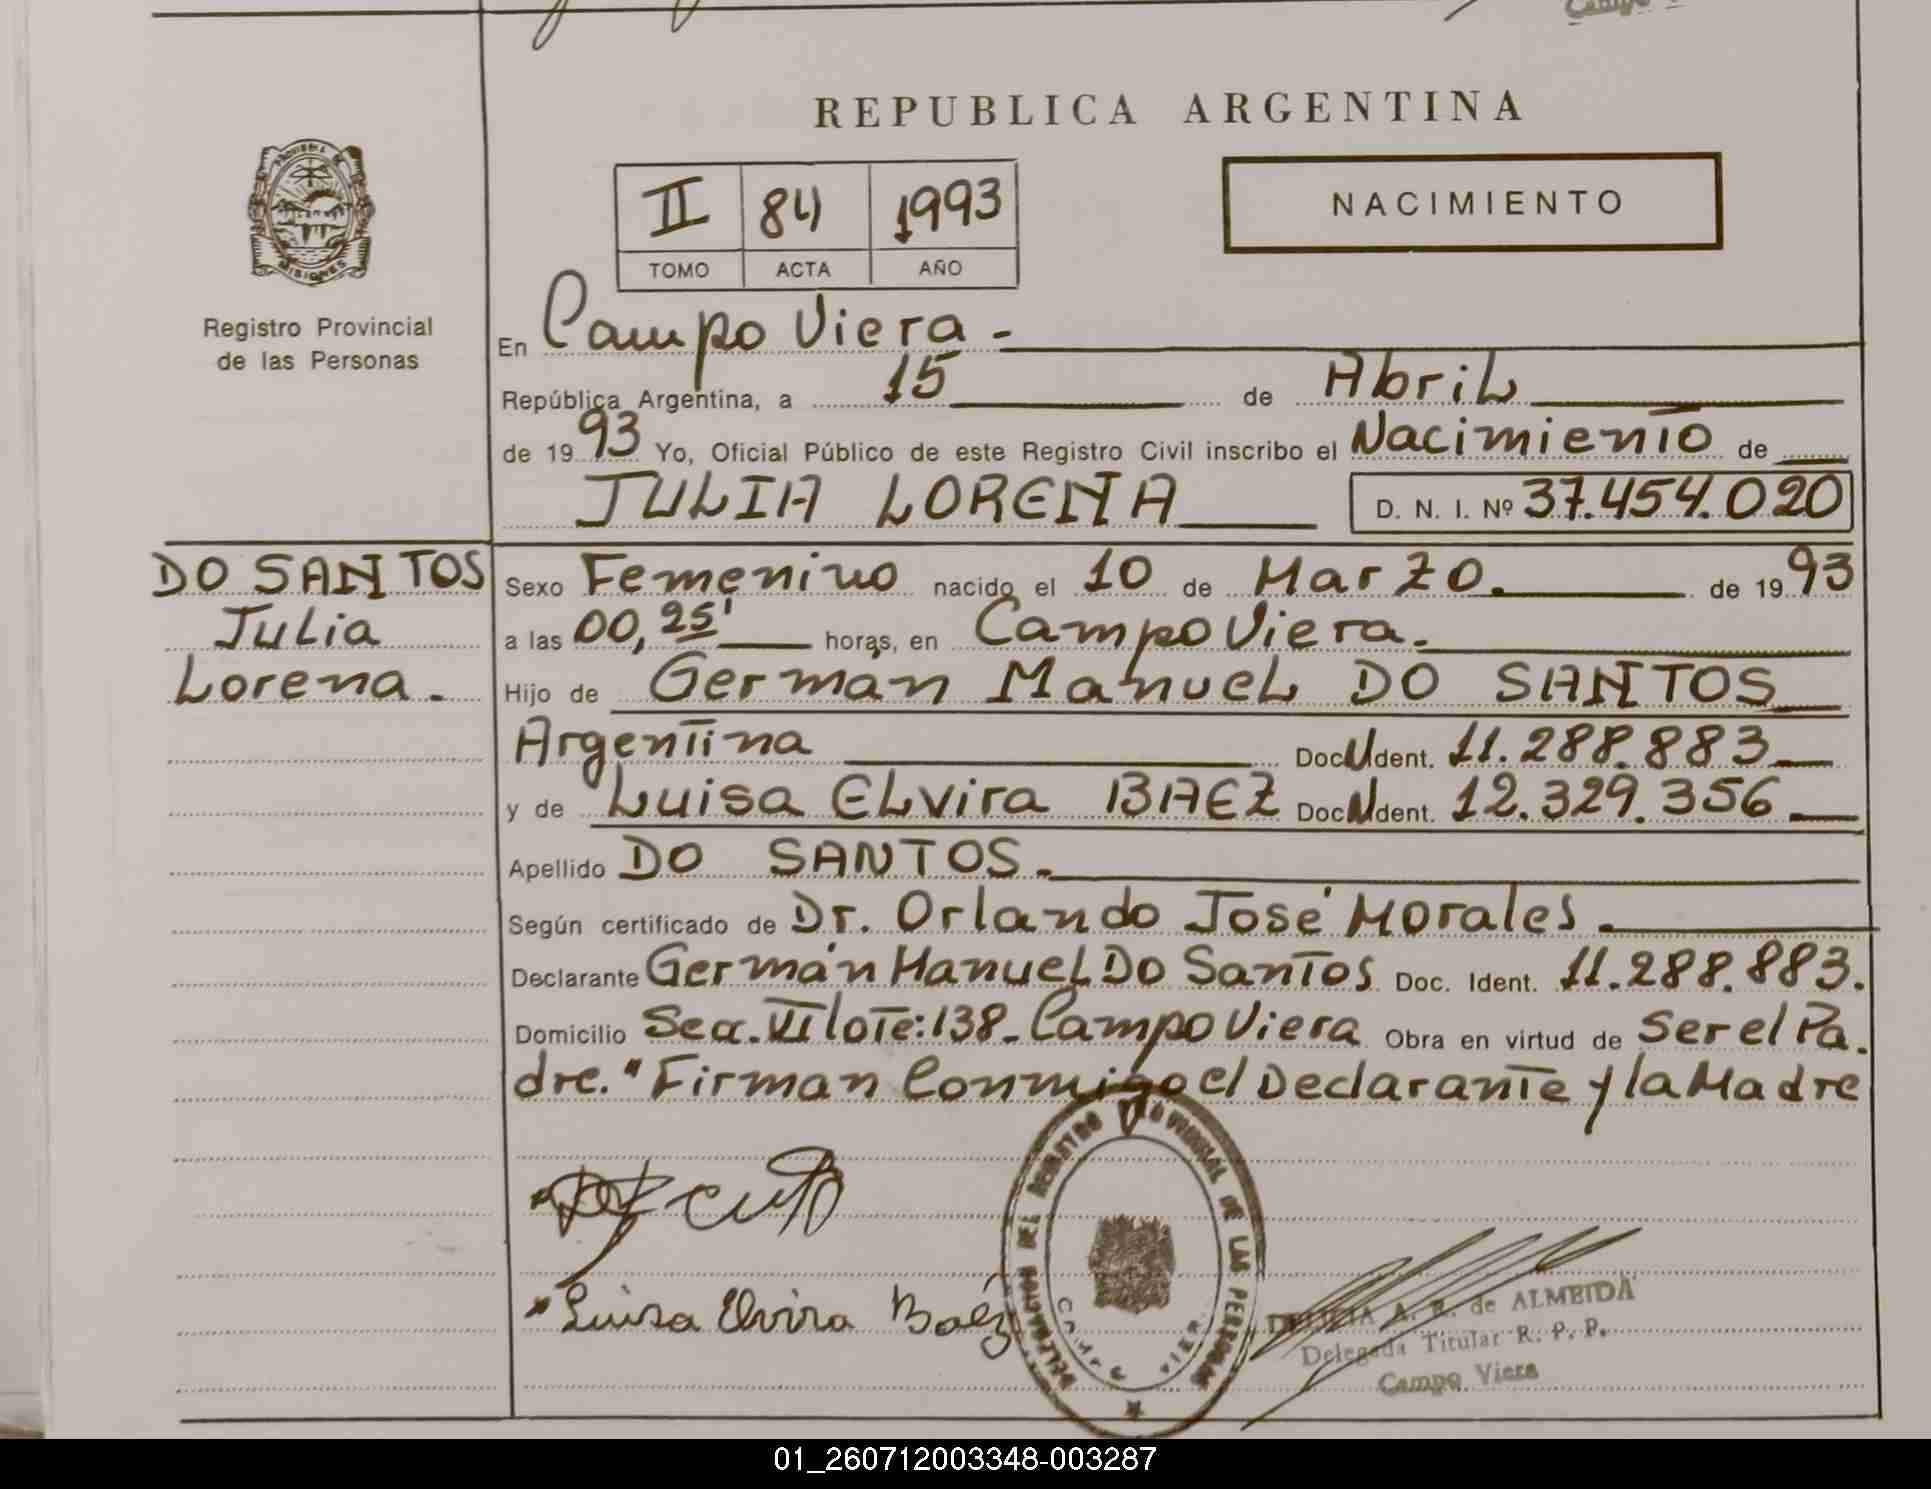 REPUBLICA ARGENTINA
PROVINCIA DE
MISIONES
Registro Provincial
de las Personas
II 84 1993
TOMO ACTA AÑO
NACIMIENTO
En Campo Viera -
República Argentina, a 15 de Abril
de 1993 Yo, Oficial Público de este Registro Civil inscribo el Nacimiento de
JULIA LORENA D. N. I. Nº 37.454.020
DO SANTOS
Julia
Lorena.
Sexo Femenino nacido el 10 de Marzo. de 1993
a las 00,25' horas, en Campo Viera.
Hijo de Germán Manuel DO SANTOS
Argentina Doc. Ident. 11.288.883
y de Luisa ELvira BAEZ Doc. Ident. 12.329.356
Apellido DO SANTOS.
Según certificado de Dr. Orlando José Morales.
Declarante Germán Manuel Do Santos Doc. Ident. 11.288.883.
Domicilio Sec. VI lote:138- Campo Viera Obra en virtud de Ser el Pa.
dre." Firman Conmigo el Declarante y la Madre
Luisa Elvira Baéz
DELEGACION DEL REGISTRO PROVINCIAL DE LAS PERSONAS
CAMPO VIERA
A. R. de ALMEIDA
Delegada Titular R. P. P.
Campo Viera
01_260712003348-003287